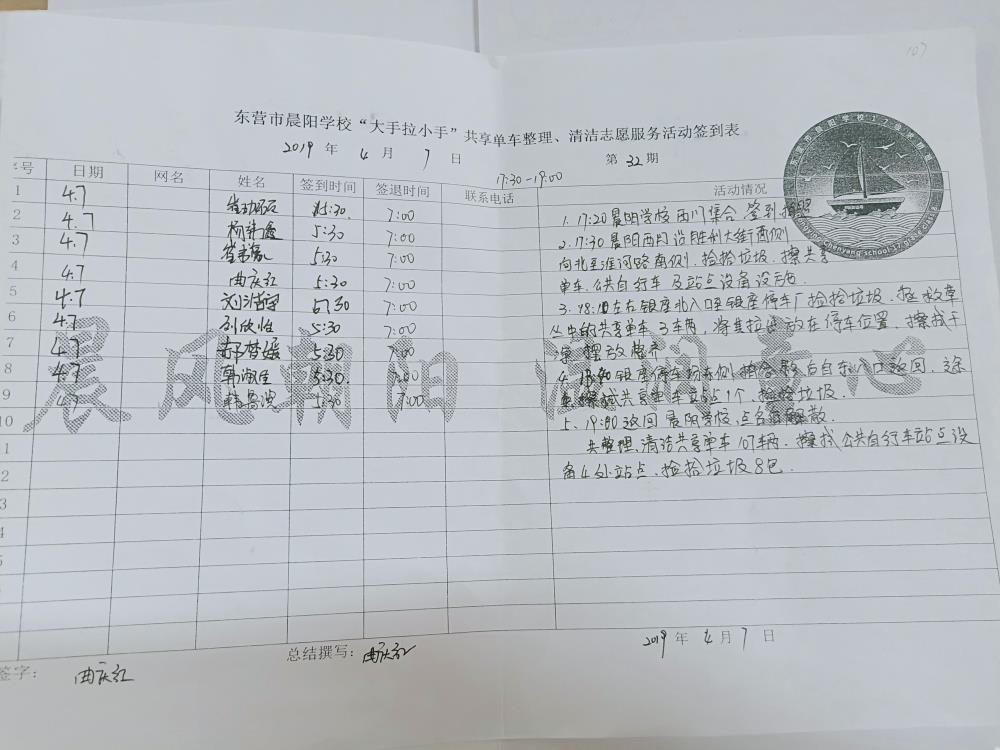 107
东营市晨阳学校“大手拉小手”共享单车整理、清洁志愿服务活动签到表
2019 年 4 月 7 日 第 32 期
17:30-19:00
号 日期 网名 姓名 签到时间 签退时间 联系电话 活动情况
1 4.7 5:30. 7:00
2 4.7 5:30 7:00
3 4.7 5:30 7:00
4 4.7 曲庆红 5:30 7:00
5 4.7 5:30 7:00
6 4.7 刘欣怡 5:30 7:00
7 4.7 5:30 7:00
8 4.7 韩淑佳 5:30. 7:00
9 4.7 5:30 7:00
10
1
2
3
4
5
1. 17:20晨阳学校西门集合,签到
2. 17:30 晨阳西门沿胜利大街两侧
向北至淮河路南侧,捡拾垃圾,擦共享
单车、公共自行车及站点设备设施
3. 18:10左右银座北入口至银座停车厂捡拾垃圾,拯救草
丛中的共享单车3车两,将其拉出放在停车位置,擦拭干
摆放整齐
4. 银座停车场东侧 后自东入口返回,途
擦拭共享单车站点1个,捡拾垃圾.
5. 19:00返回晨阳学校,点名解散.
共整理、清洁共享单车107车两.擦拭公共自行车站点设
备4处站点,捡拾垃圾8包.
晨风朝阳 润童心
2019 年 4 月 7 日
签字: 曲庆红 总结撰写: 曲庆红